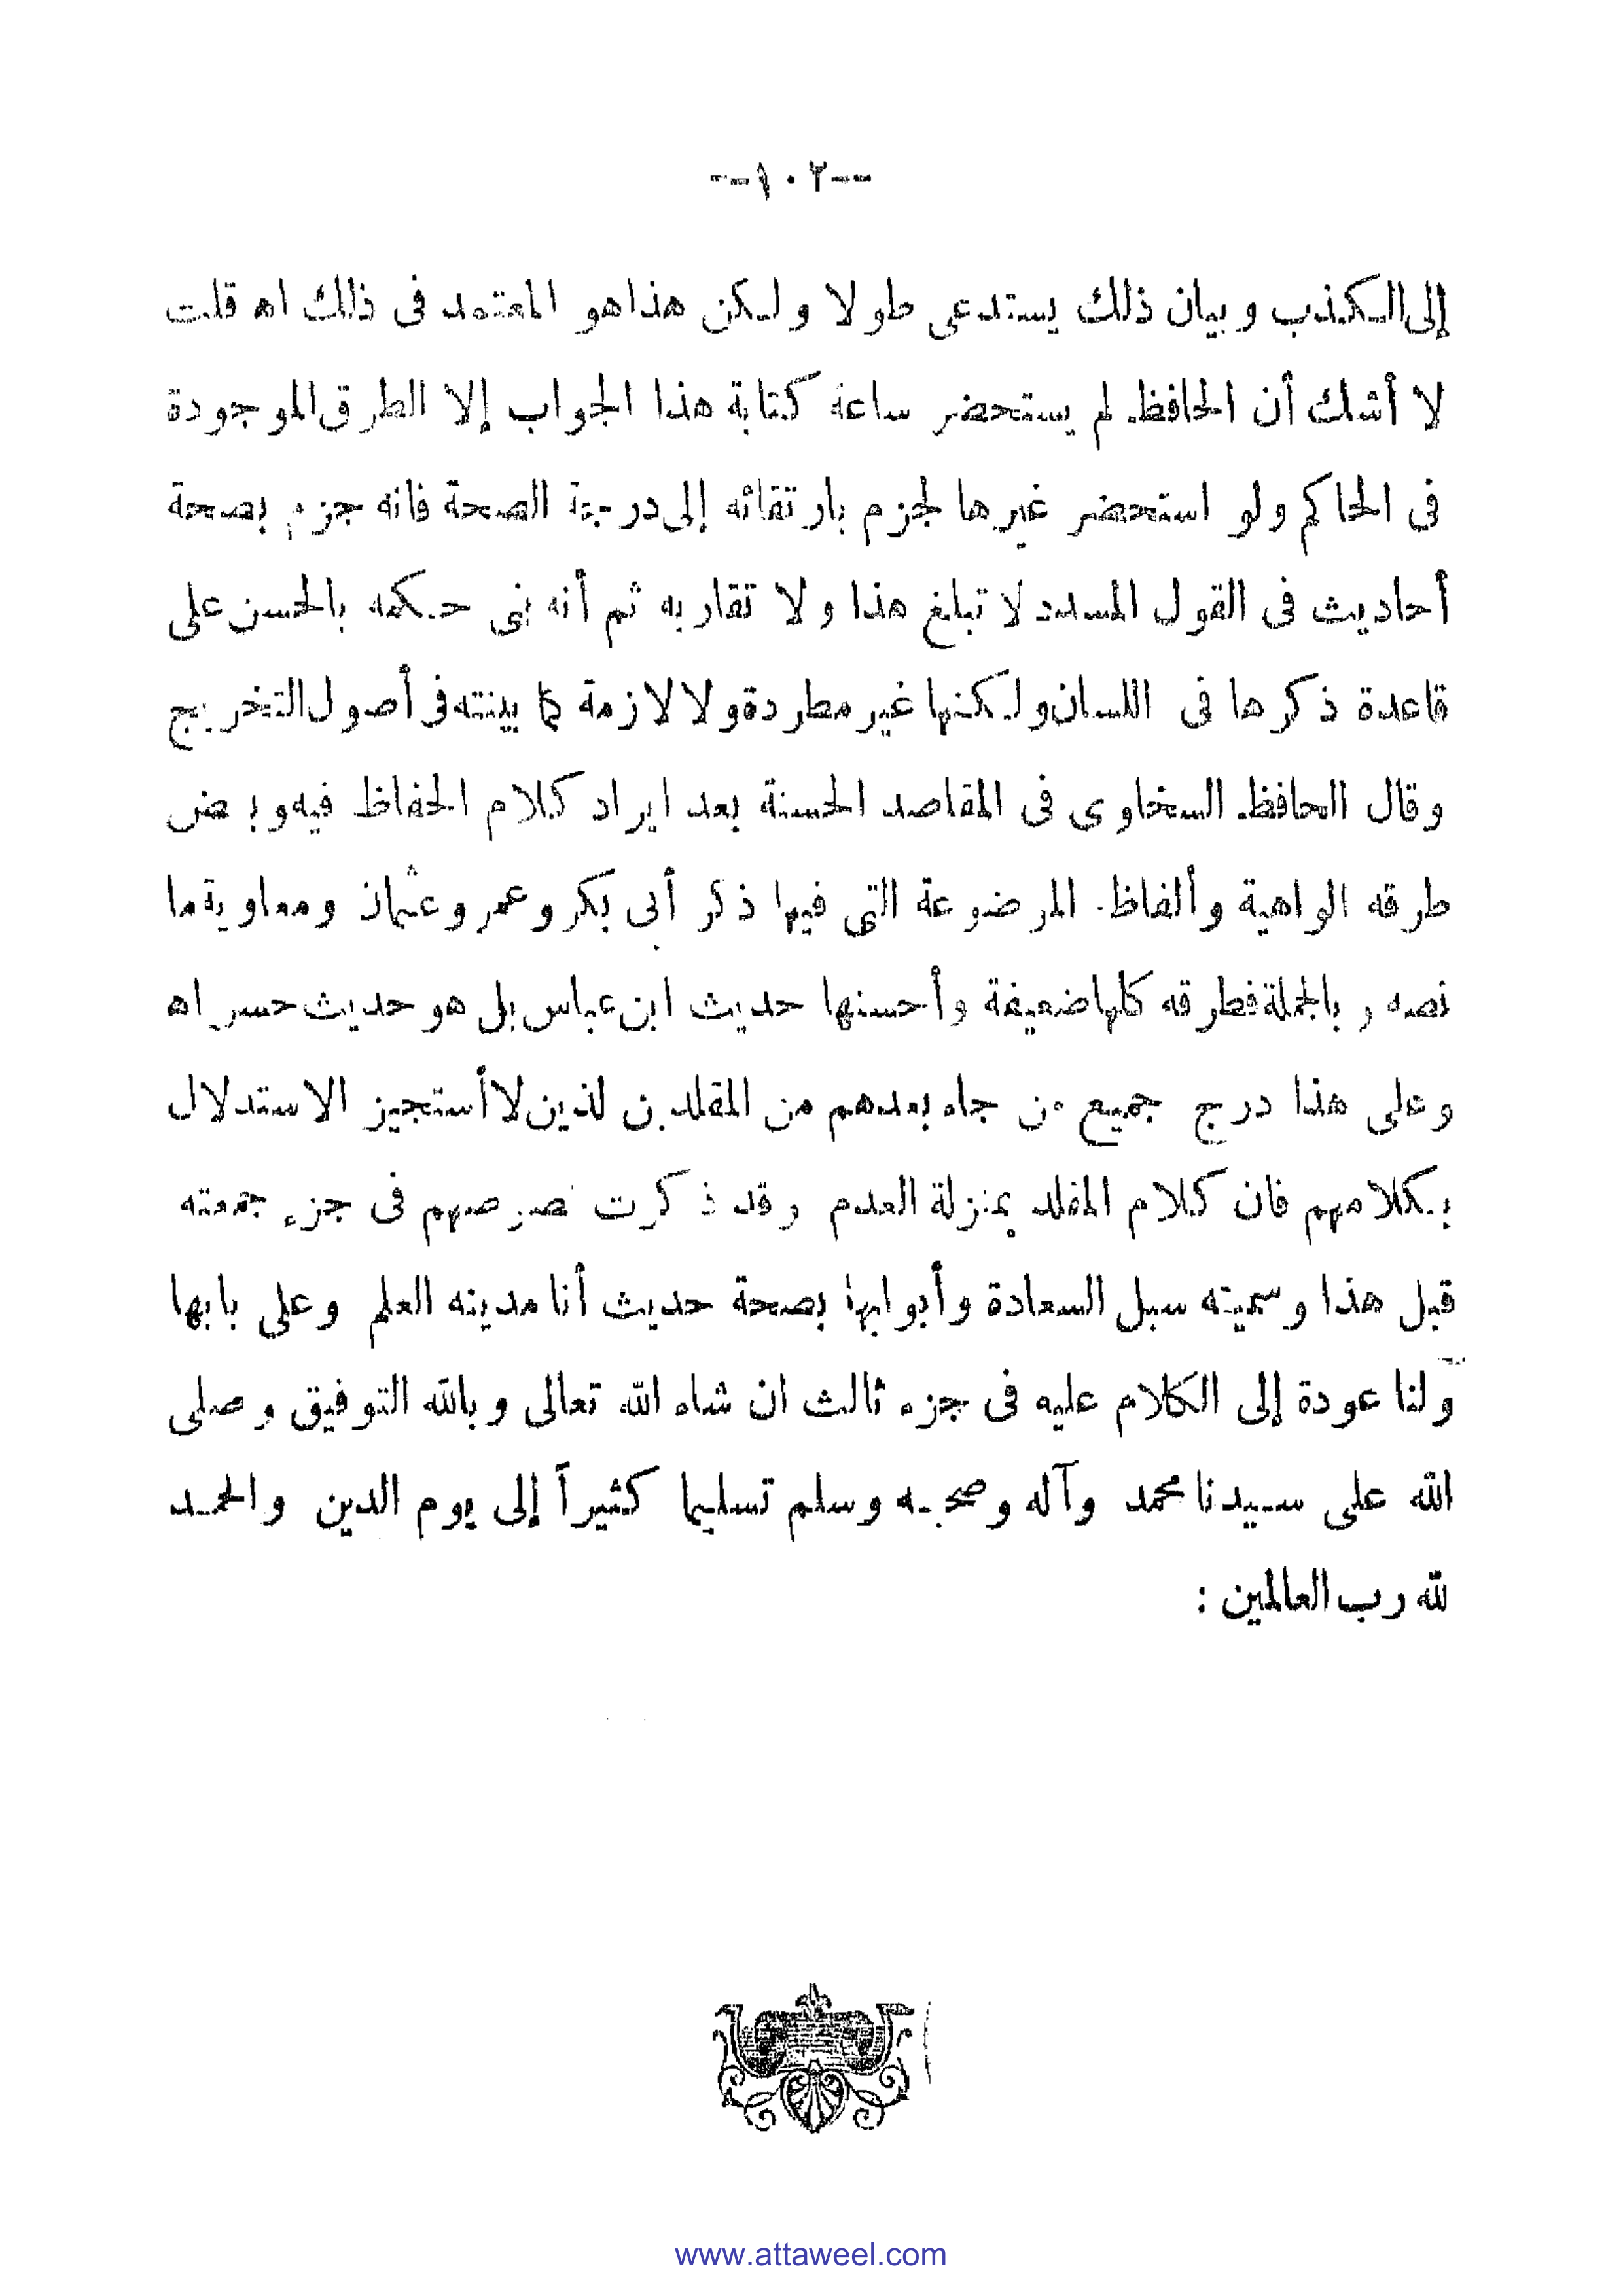 --١٠٢--
إلى الكذب وبيان ذلك يستدعى طولا ولكن هذا هو المعتمد فى ذلك اه قلت
لا أشك أن الحافظ لم يستحضر ساعة كتابة هذا الجواب إلا الطرق الموجودة
فى الحاكم ولو استحضر غيرها لجزم بارتقائه إلى درجة الصحة فانه جزم بصحة
أحاديث فى القول المسدد لا تبلغ هذا ولا تقاربه ثم أنه بنى حكمه بالحسن على
قاعدة ذكرها فى اللسان ولكنها غير مطردة ولا لازمة كما بينته فى أصول التخريج
وقال الحافظ السخاوى فى المقاصد الحسنة بعد ايراد كلام الحفاظ فيه وبعض
طرقه الواهية وألفاظ الموضوعة التى فيها ذكر أبى بكر وعمر وعثمان ومعاوية ما
نصه وبالجملة فطرقه كلها ضعيفة وأحسنها حديث ابن عباس بل هو حديث حسن اه
وعلى هذا درج جميع من جاء بعدهم من المقلدين لذين لا أستجيز الاستدلال
بكلامهم فان كلام المقلد بمنزلة العدم وقد ذكرت نصوصهم فى جزء جمعته
قبل هذا وسميته سبل السعادة وأبوابها بصحة حديث أنا مدينه العلم وعلى بابها
ولنا عودة إلى الكلام عليه فى جزء ثالث ان شاء الله تعالى وبالله التوفيق وصلى
الله على سيدنا محمد وآله وصحبه وسلم تسليما كثيراً إلى يوم الدين والحمد
لله رب العالمين :
www.attaweel.com